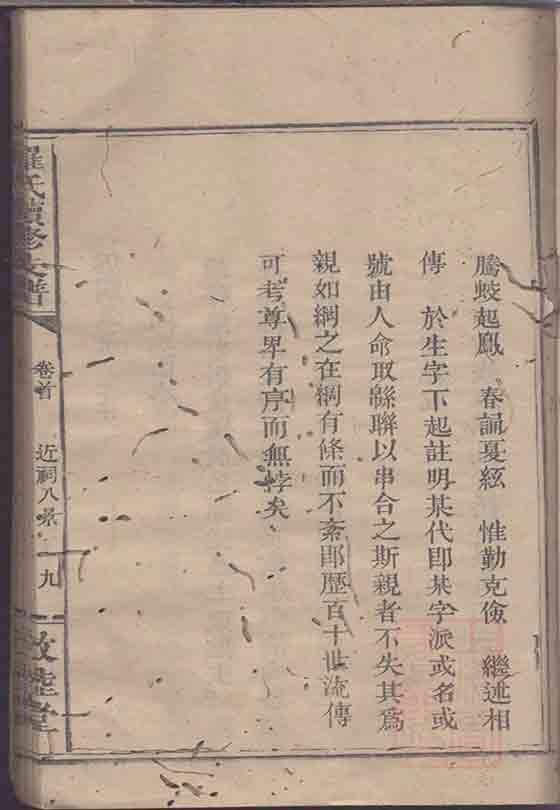 騰蛟起鳳　春誦夏絃　惟勤克儉　繼述相
傳　於生字下起註明某代即某字派或名或
號由人命取緜聯以串合之斯親者不失其為
親如綱之在綱有條而不紊即歷百十世流傳
可考尊卑有序而無悖矣
羅氏續修支譜
卷首
近祠八景
九
敦睦堂